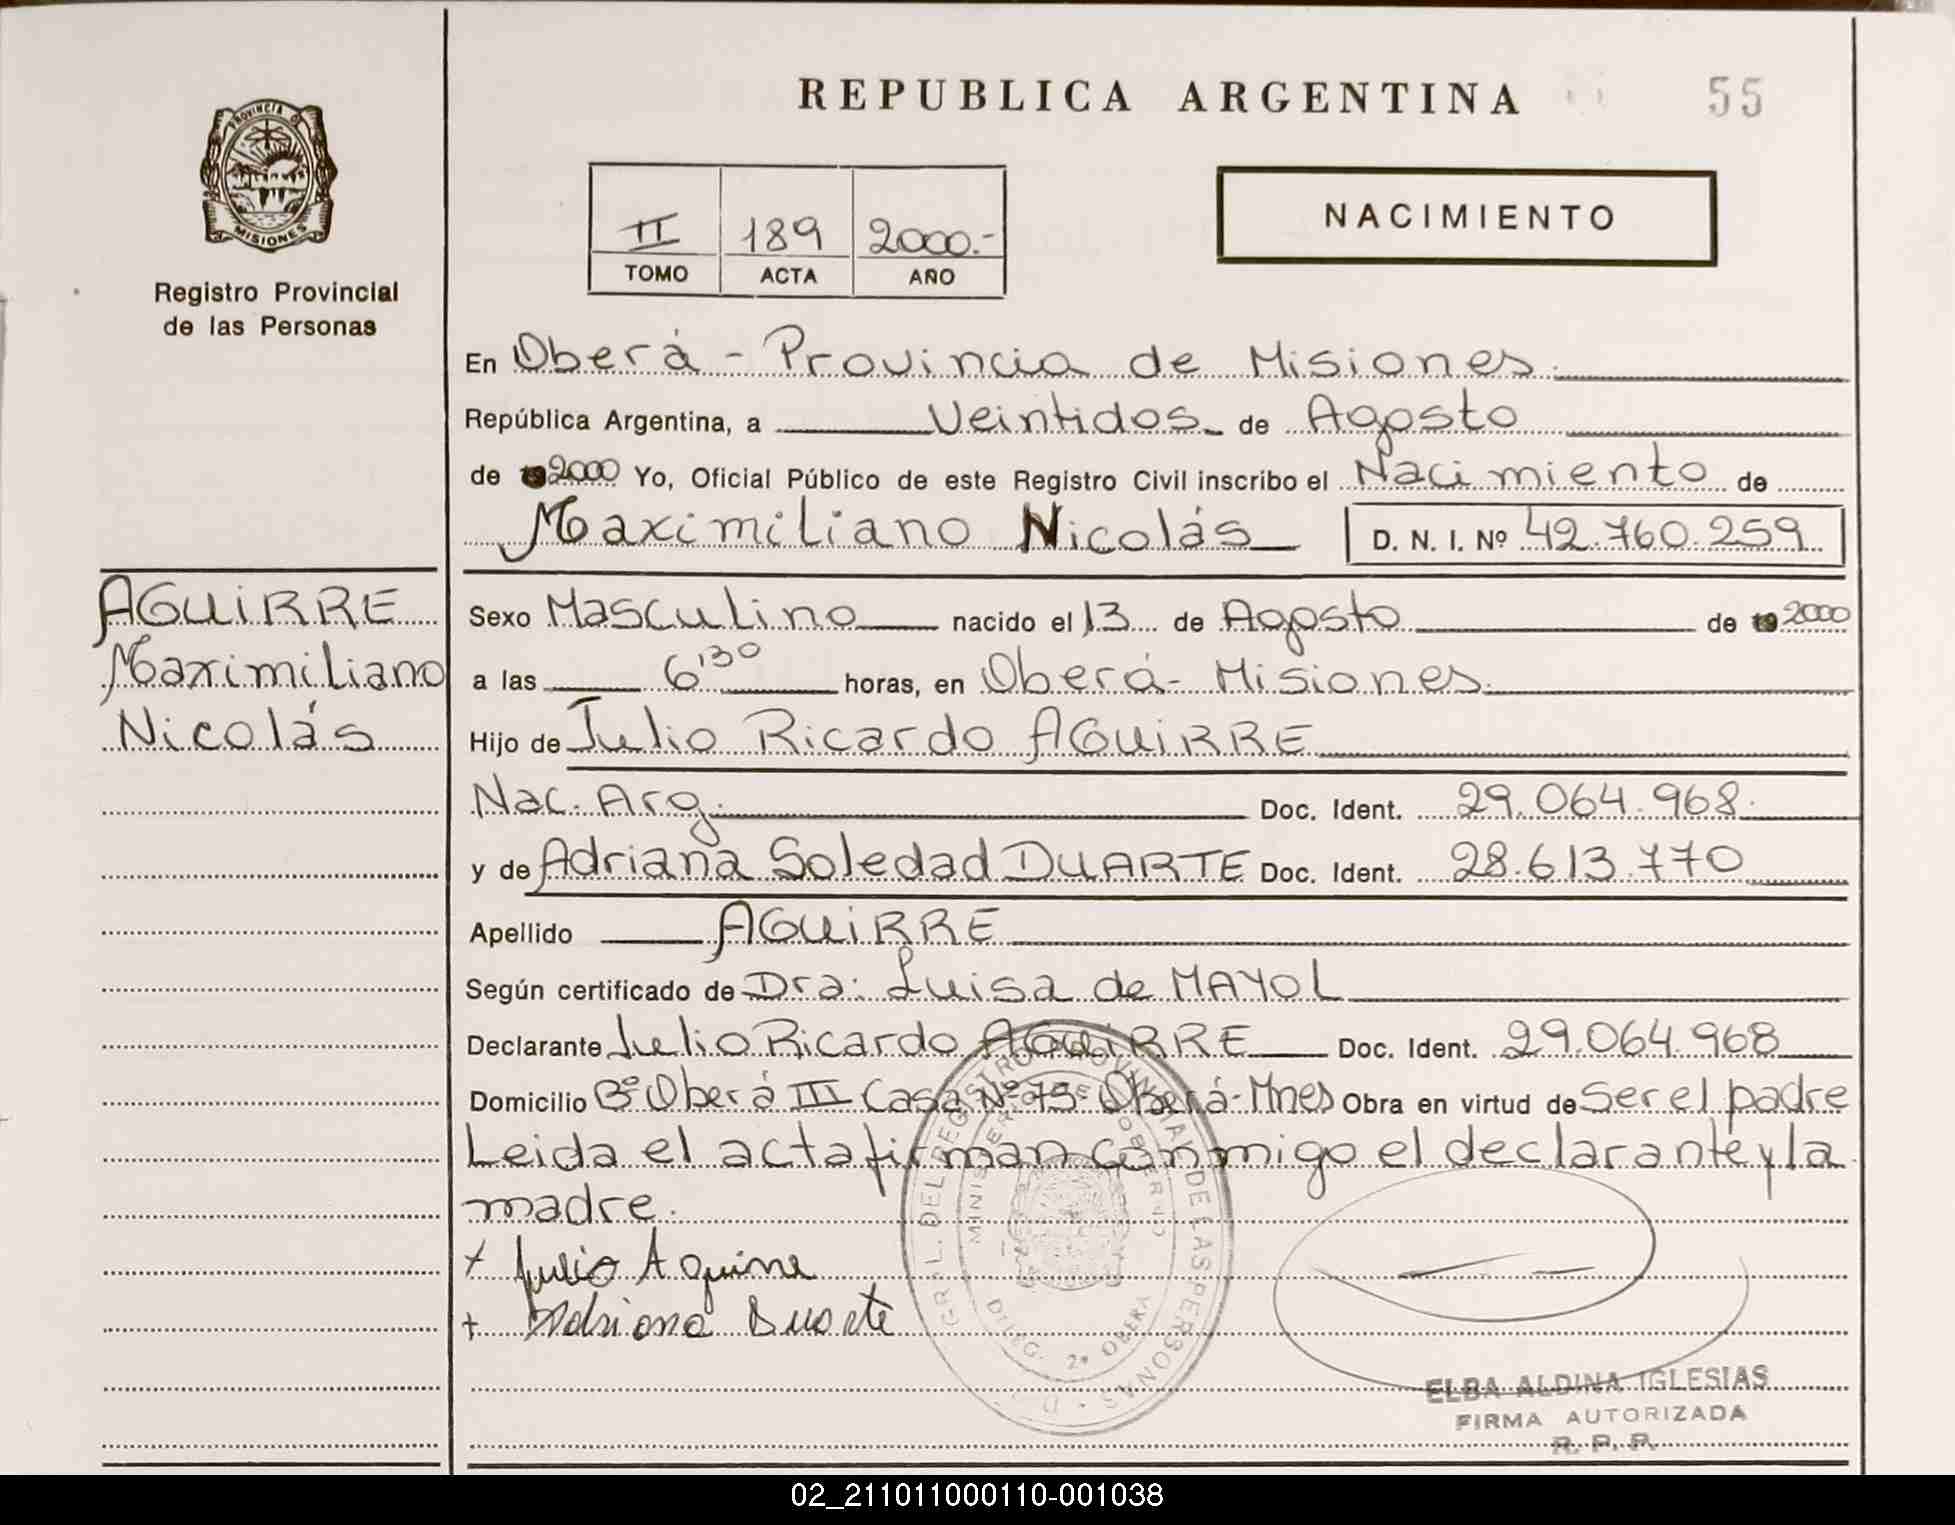 REPUBLICA ARGENTINA 55
PROVINCIA DE
MISIONES
Registro Provincial
de las Personas
II 189 2000.-
TOMO ACTA AÑO
NACIMIENTO
En Oberá - Provincia de Misiones.
República Argentina, a Veintidos de Agosto
de 2000 Yo, Oficial Público de este Registro Civil inscribo el Nacimiento de
Maximiliano Nicolás D. N. I. Nº 42.760.259
AGUIRRE
Maximiliano
Nicolás
Sexo Masculino nacido el 13 de Agosto de 19 2000
a las 6'30 horas, en Oberá - Misiones.
Hijo de Julio Ricardo AGUIRRE
Nac. Arg. Doc. Ident. 29.064.968.
y de Adriana Soledad DUARTE Doc. Ident. 28.613.770
Apellido AGUIRRE
Según certificado de Dra: Luisa de MAYOL
Declarante Julio Ricardo AGUIRRE Doc. Ident. 29.064.968
Domicilio Bº Oberá III Casa Nº 75- Oberá-Mnes Obra en virtud de Ser el padre
Leida el acta firman conmigo el declarante y la
madre.
+ Julio Aguirre
+ Adriana Duarte
GRAL. DEL REGISTRO PROVINCIAL DE LAS PERSONAS
MINISTERIO DE GOBIERNO
DELEG. 2ª OBERA
ELBA ALDINA IGLESIAS
FIRMA AUTORIZADA
R. P. P.
02_211011000110-001038